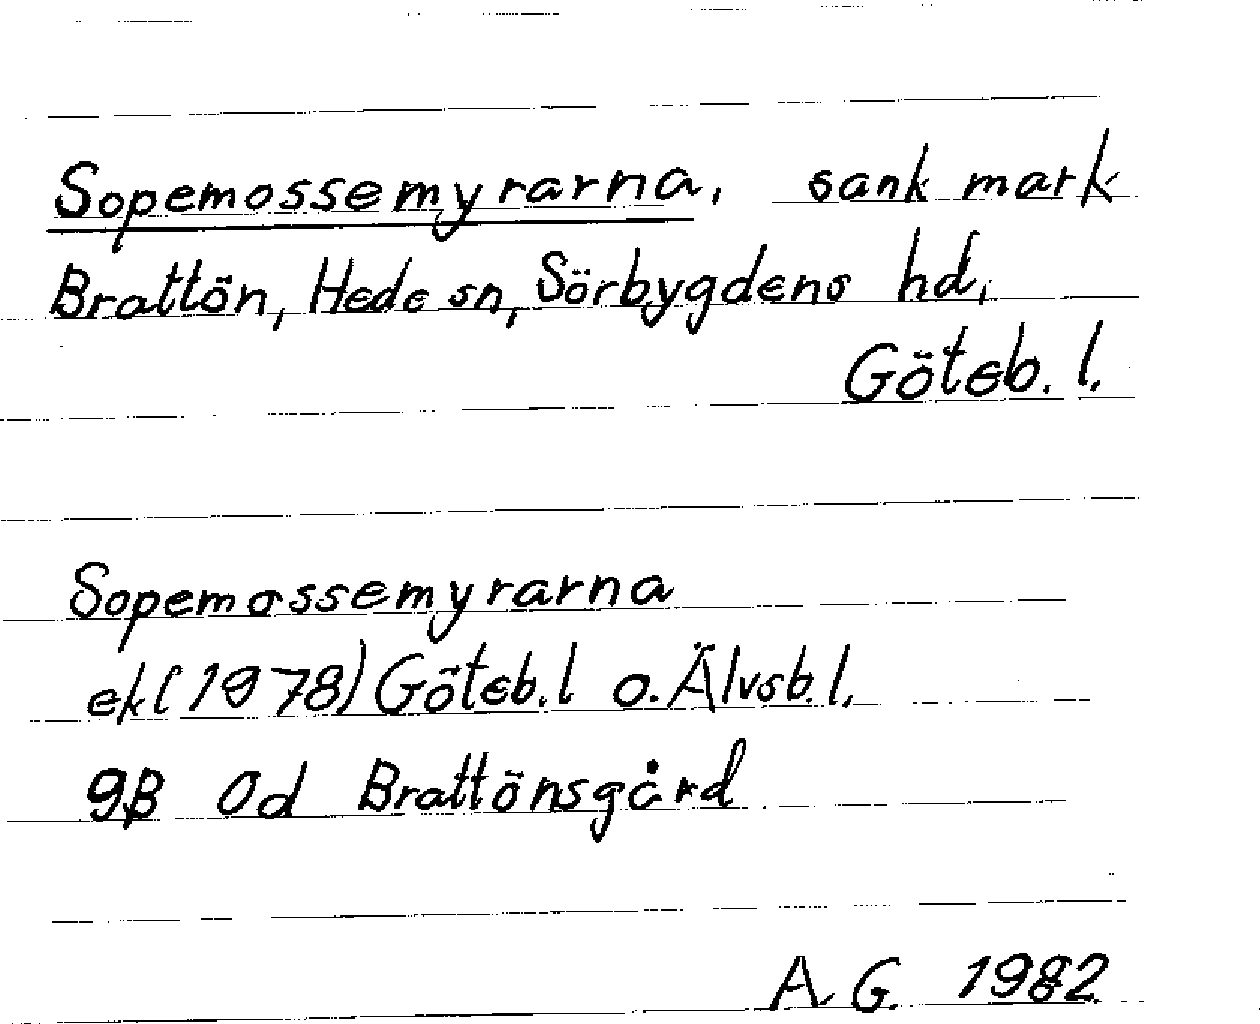 Sopemossemyrarna, sank mark
Brattön, Hede sn, Sörbygdens hd,
Göteb. l.
Sopemossemyrarna
ek (1978) Göteb. l o. Älvsb. l.
9B 0d Brattönsgård
A. G. 1982